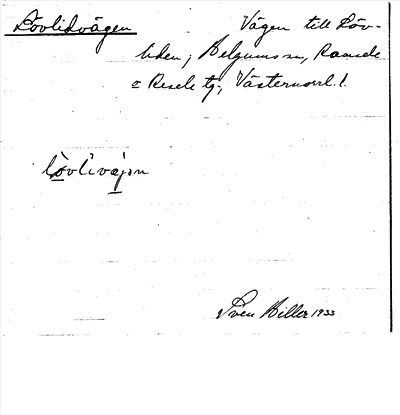 Lövlidvägen Vägen till Löv-
liden, Helgums sn, Ramsele
o Resele tg., Västernorrl. l.
lövliväjən
Sven Hiller 1933